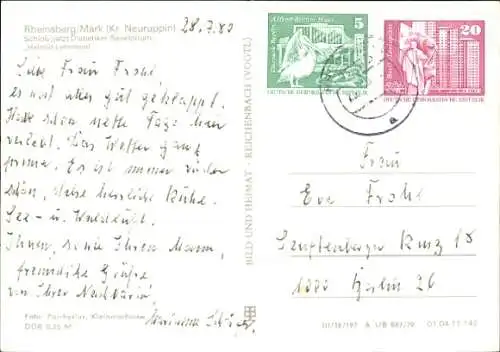 Rheinsberg/Mark (Kr. Neuruppin)
Schloß, jetzt Diabetiker-Sanatorium
"Helmut Lehmann"
28.7.80
Liebe Frau Frohe,
es hat aber gut geklappt.
Habe schön nette Tage hier
verlebt. Das Wetter ganz
prima. Es ist immer wieder
schön, diese herrliche Ruhe.
See- u. Waldluft.
Ihnen, sowie Ihrem Mann,
freundliche Grüße
von Ihrer Nachbarin
Marianne
Foto: Darr
DDR 0,25 M
BILD UND HEIMAT · REICHENBACH (VOGTL)
5
DEUTSCHE DEMOKRATISCHE REPUBLIK
20
DEUTSCHE DEMOKRATISCHE REPUBLIK
a
Frau
Eva Frohe
Senftenberger Ring 18
1000 Berlin 26
III/18/197 A 1/B 882/79 01 04 11 140